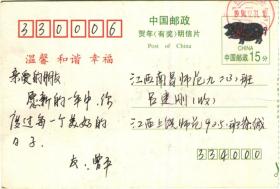 330006
中国邮政
贺年(有奖)明信片
Post of China
CHINA
中国邮政 15分
温馨 和谐 幸福
亲爱的朋友
愿新的一年中,你
度过每一个美好的
日子.
江西南昌师范九二(3)班
吕建刚(收)
江西上饶师范925班徐缄
334000